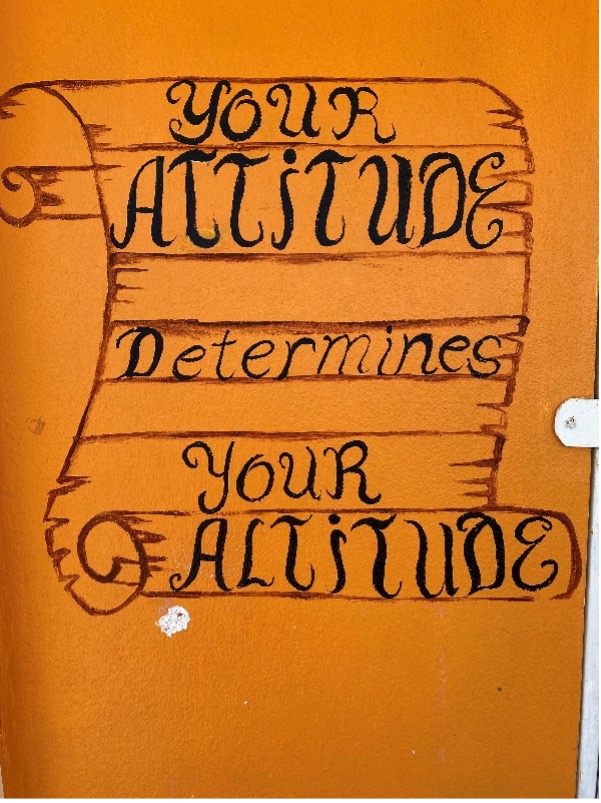 YOUR
ATTiTUDE
Determines
YOUR
ALTiTUDE